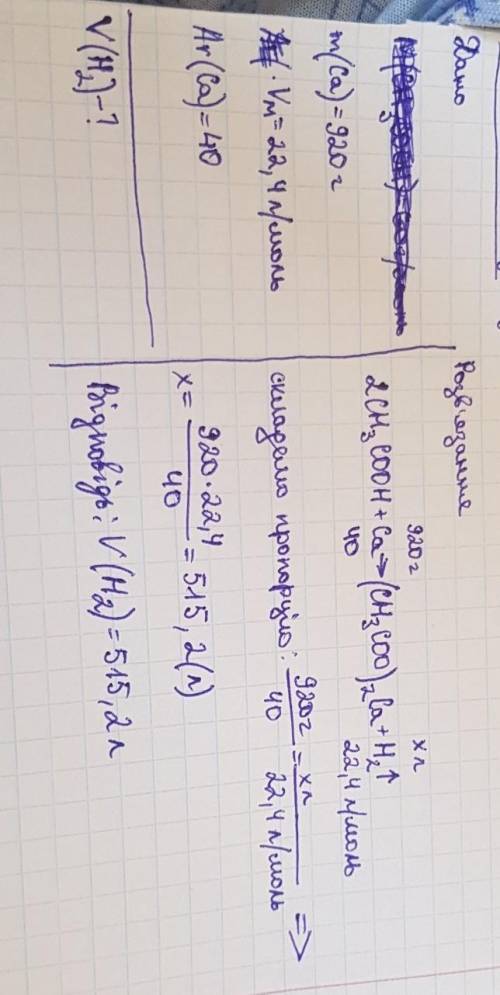 Дано
m(Ca)=920г
Vm=22,4 л/моль
Ar(Ca)=40
V(H₂)-?
Розв'язання
920г xл
2CH₃COOH+Ca→(CH₃COO)₂Ca+H₂↑
40 22,4 л/моль
складемо пропорцію: 920г/40 = xл/22,4 л/моль ⇒
x= 920·22,4/40 =515,2(л)
Відповідь: V(H₂)=515,2л